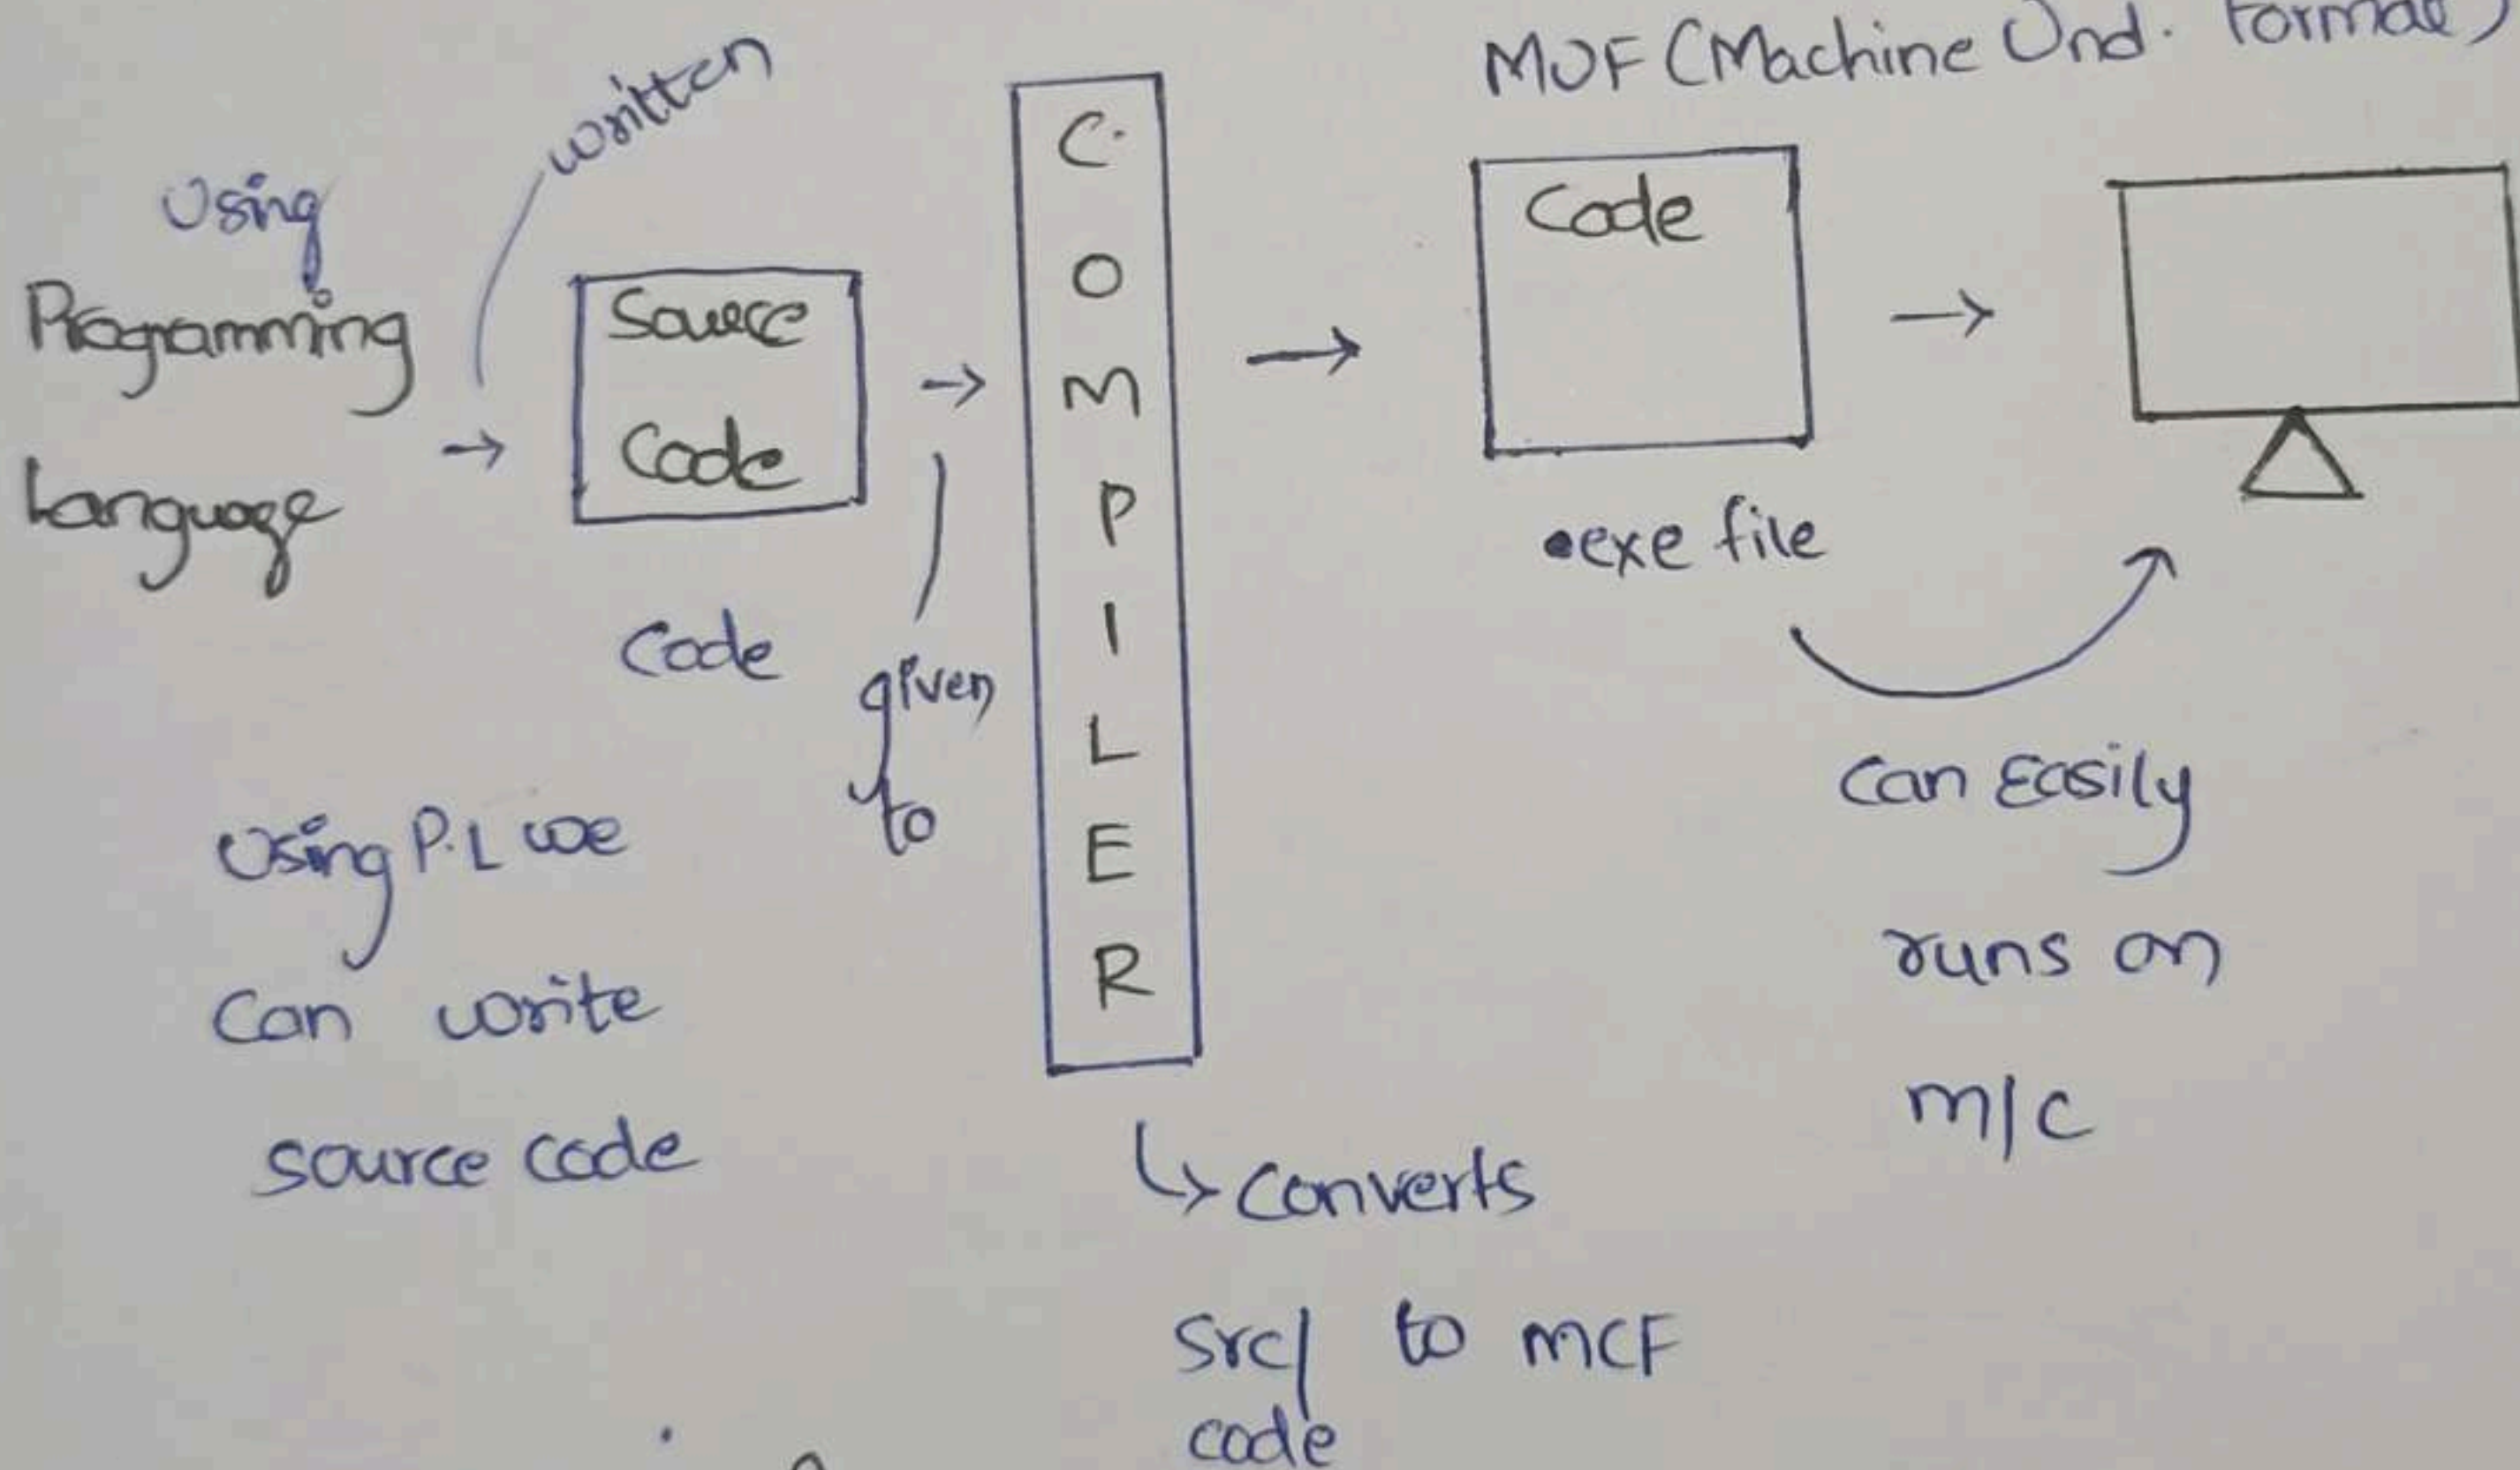 MUF (Machine Und. Format)
written
Using
Programming
Language
Source
Code
Code
given
to
COMPILER
Code
.exe file
Using P.L we
Can write
source code
Can Easily
runs on
m/c
Converts
src/ to MCF
code